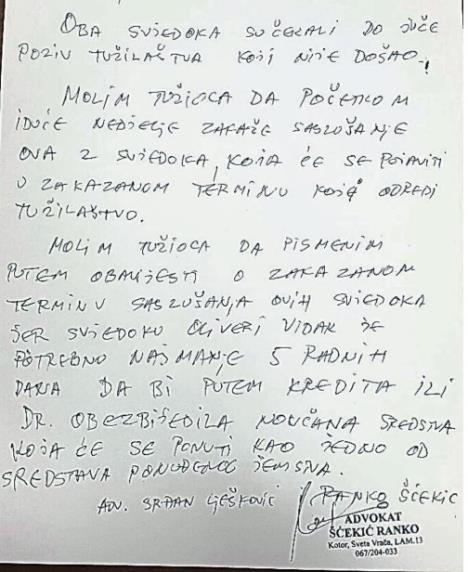 OBA SVJEDOKA SU ČEKALI DO JUČE
POZIV TUŽILAŠTVA KOJI NIJE DOŠAO.!
MOLIM TUŽIOCA DA POČETKOM
IDUĆE NEDJELJE ZAKAŽE SASLUŠANJE
OVA 2 SVJEDOKA, KOJA ĆE SE POJAVITI
U ZAKAZANOM TERMINU KOJE ODREDI
TUŽILAŠTVO.
MOLIM TUŽIOCA DA PISMENIM
PUTEM OBAVJESTI O ZAKAZANOM
TERMINU SASLUŠANJA OVIH SVJEDOKA
JER SVJEDOKU OLIVERI VIDAK JE
POTREBNO NAJMANJE 5 RADNIH
DANA DA BI PUTEM KREDITA ILI
DR. OBEZBIJEDILA NOVČANA SREDSTVA
KOJA ĆE SE PONUTI KAO JEDNO OD
SREDSTAVA PONUĐENOG JEMSTVA.
ADV. SRĐAN LJEŠKOVIĆ RANKO ŠĆEKIĆ
ADVOKAT
ŠĆEKIĆ RANKO
Kotor, Sveta Vrača, LAM.13
067/204-033